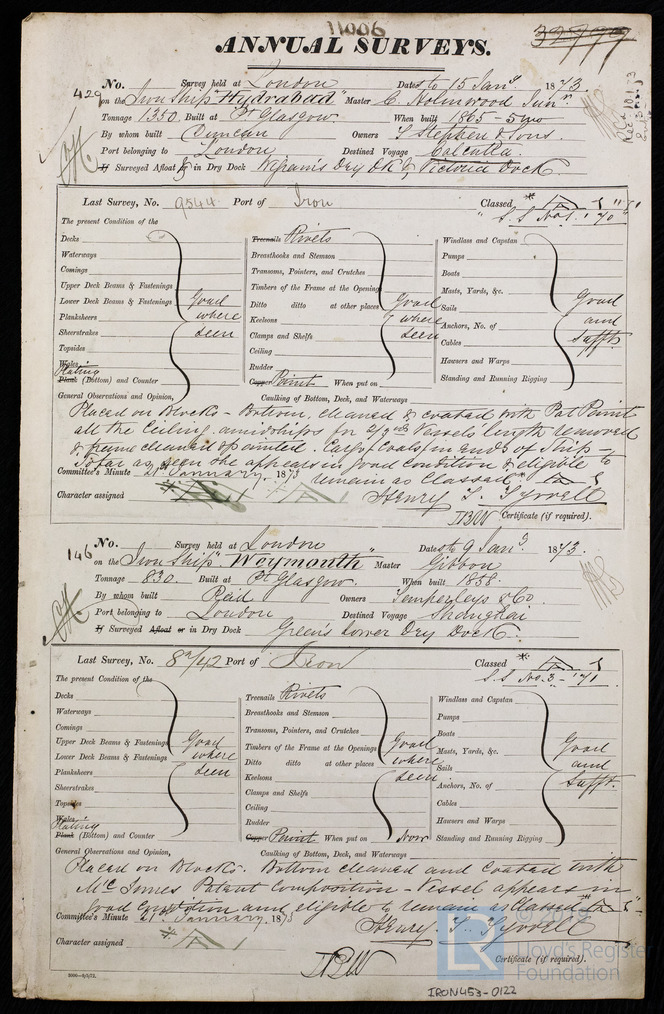 11006
32799
ANNUAL SURVEYS.
429 No. Survey held at London Date to 15 Jany. 1873.
on the Iron Ship "Hydrabad" Master C. Holmwood Junr
Tonnage 1350. Built at Pt Glasgow. When built 1865 - 5mo
By whom built Duncan Owners T. Stephen & Sons.
Port belonging to London Destined Voyage Calcutta.
If Surveyed Afloat & in Dry Dock Dry Dk & Victoria Dock
Last Survey, No. 9544 Port of Iron Classed
"S.S. No. 1. '70"
The present Condition of the
Decks
Waterways
Comings
Upper Deck Beams & Fastenings
Lower Deck Beams & Fastenings
Planksheers
Sheerstrakes
Topsides
Wales
Plating
Plank (Bottom) and Counter
Good where seen
Treenails Rivets
Breasthooks and Stemson
Transoms, Pointers, and Crutches
Timbers of the Frame at the Openings
Ditto ditto at other places
Keelsons
Clamps and Shelfs
Ceiling
Rudder
Copper Paint When put on
Good where seen
Windlass and Capstan
Pumps
Boats
Masts, Yards, &c.
Sails
Anchors, No. of
Cables
Hawsers and Warps
Standing and Running Rigging
Good and Sufft.
General Observations and Opinion, Caulking of Bottom, Deck, and Waterways
Placed on Blocks - Bottom, cleaned & coated with Pat Paint
all the Ceiling amidships for 2/3rds Vessels length removed
& frame cleaned & painted. Cargo (Coals) in ends of Ship -
So far as seen she appears in good condition & eligible to
remain as Classed
Committee's Minute 21st January 1873
Character assigned
Henry T. Tyrrell
Certificate (if required).
146 No. Survey held at London Date to 9 Jany. 1873.
on the Iron Ship "Weymouth" Master Gibbon
Tonnage 830. Built at Pt Glasgow. When built 1858.
By whom built Reid Owners Temperleys & Co.
Port belonging to London Destined Voyage Shanghai
If Surveyed Afloat or in Dry Dock Green's Lower Dry Dock.
Last Survey, No. Port of Iron Classed
S.S. No. 3 - '71
The present Condition of the
Decks
Waterways
Comings
Upper Deck Beams & Fastenings
Lower Deck Beams & Fastenings
Planksheers
Sheerstrakes
Topsides
Wales
Plating
Plank (Bottom) and Counter
Good where seen
Treenails Rivets
Breasthooks and Stemson
Transoms, Pointers, and Crutches
Timbers of the Frame at the Openings
Ditto ditto at other places
Keelsons
Clamps and Shelfs
Ceiling
Rudder
Copper Paint When put on Now
Good where seen.
Windlass and Capstan
Pumps
Boats
Masts, Yards, &c.
Sails
Anchors, No. of
Cables
Hawsers and Warps
Standing and Running Rigging
Good and Sufft.
General Observations and Opinion, Caulking of Bottom, Deck, and Waterways
Placed on Blocks. Bottom cleaned and coated with
McInnes Patent Composition - Vessel appears in
good condition and eligible to remain as Classed
Committee's Minute 21st January 1873
Henry T. Tyrrell
Character assigned
Certificate (if required).
IRON453-0122
LR
Lloyd's Register
Foundation